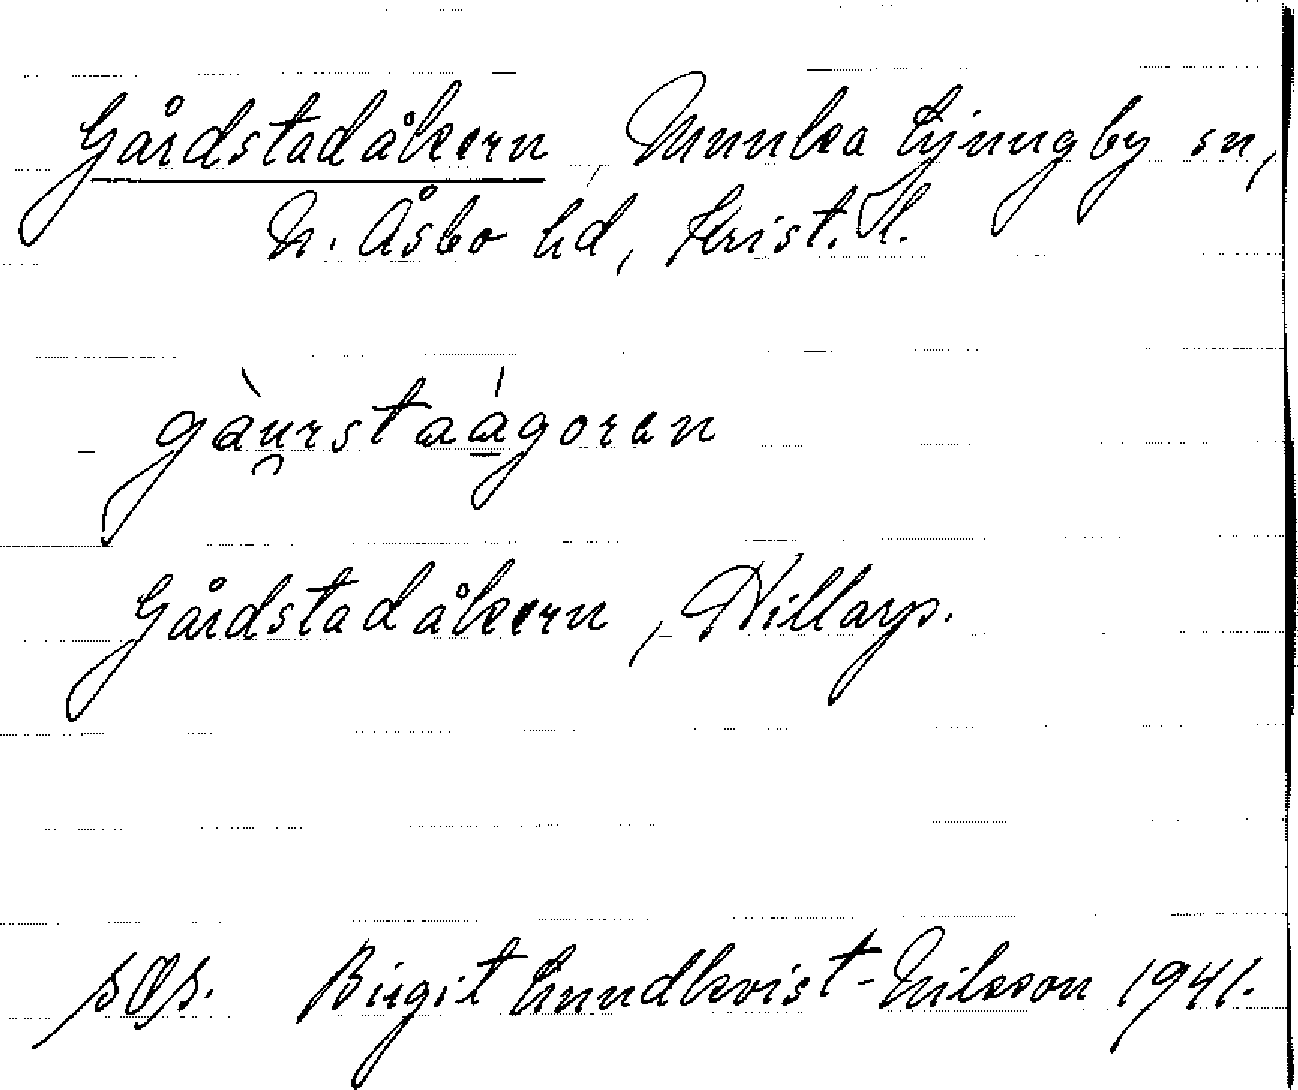 Gårdstadåkern, Munka Ljungby sn,
N. Åsbo hd, Krist. l.
gàu̯rstaágoren
Gårdstadåkern, Hillarp.
Birgit Lundkvist-Nilsson 1941.